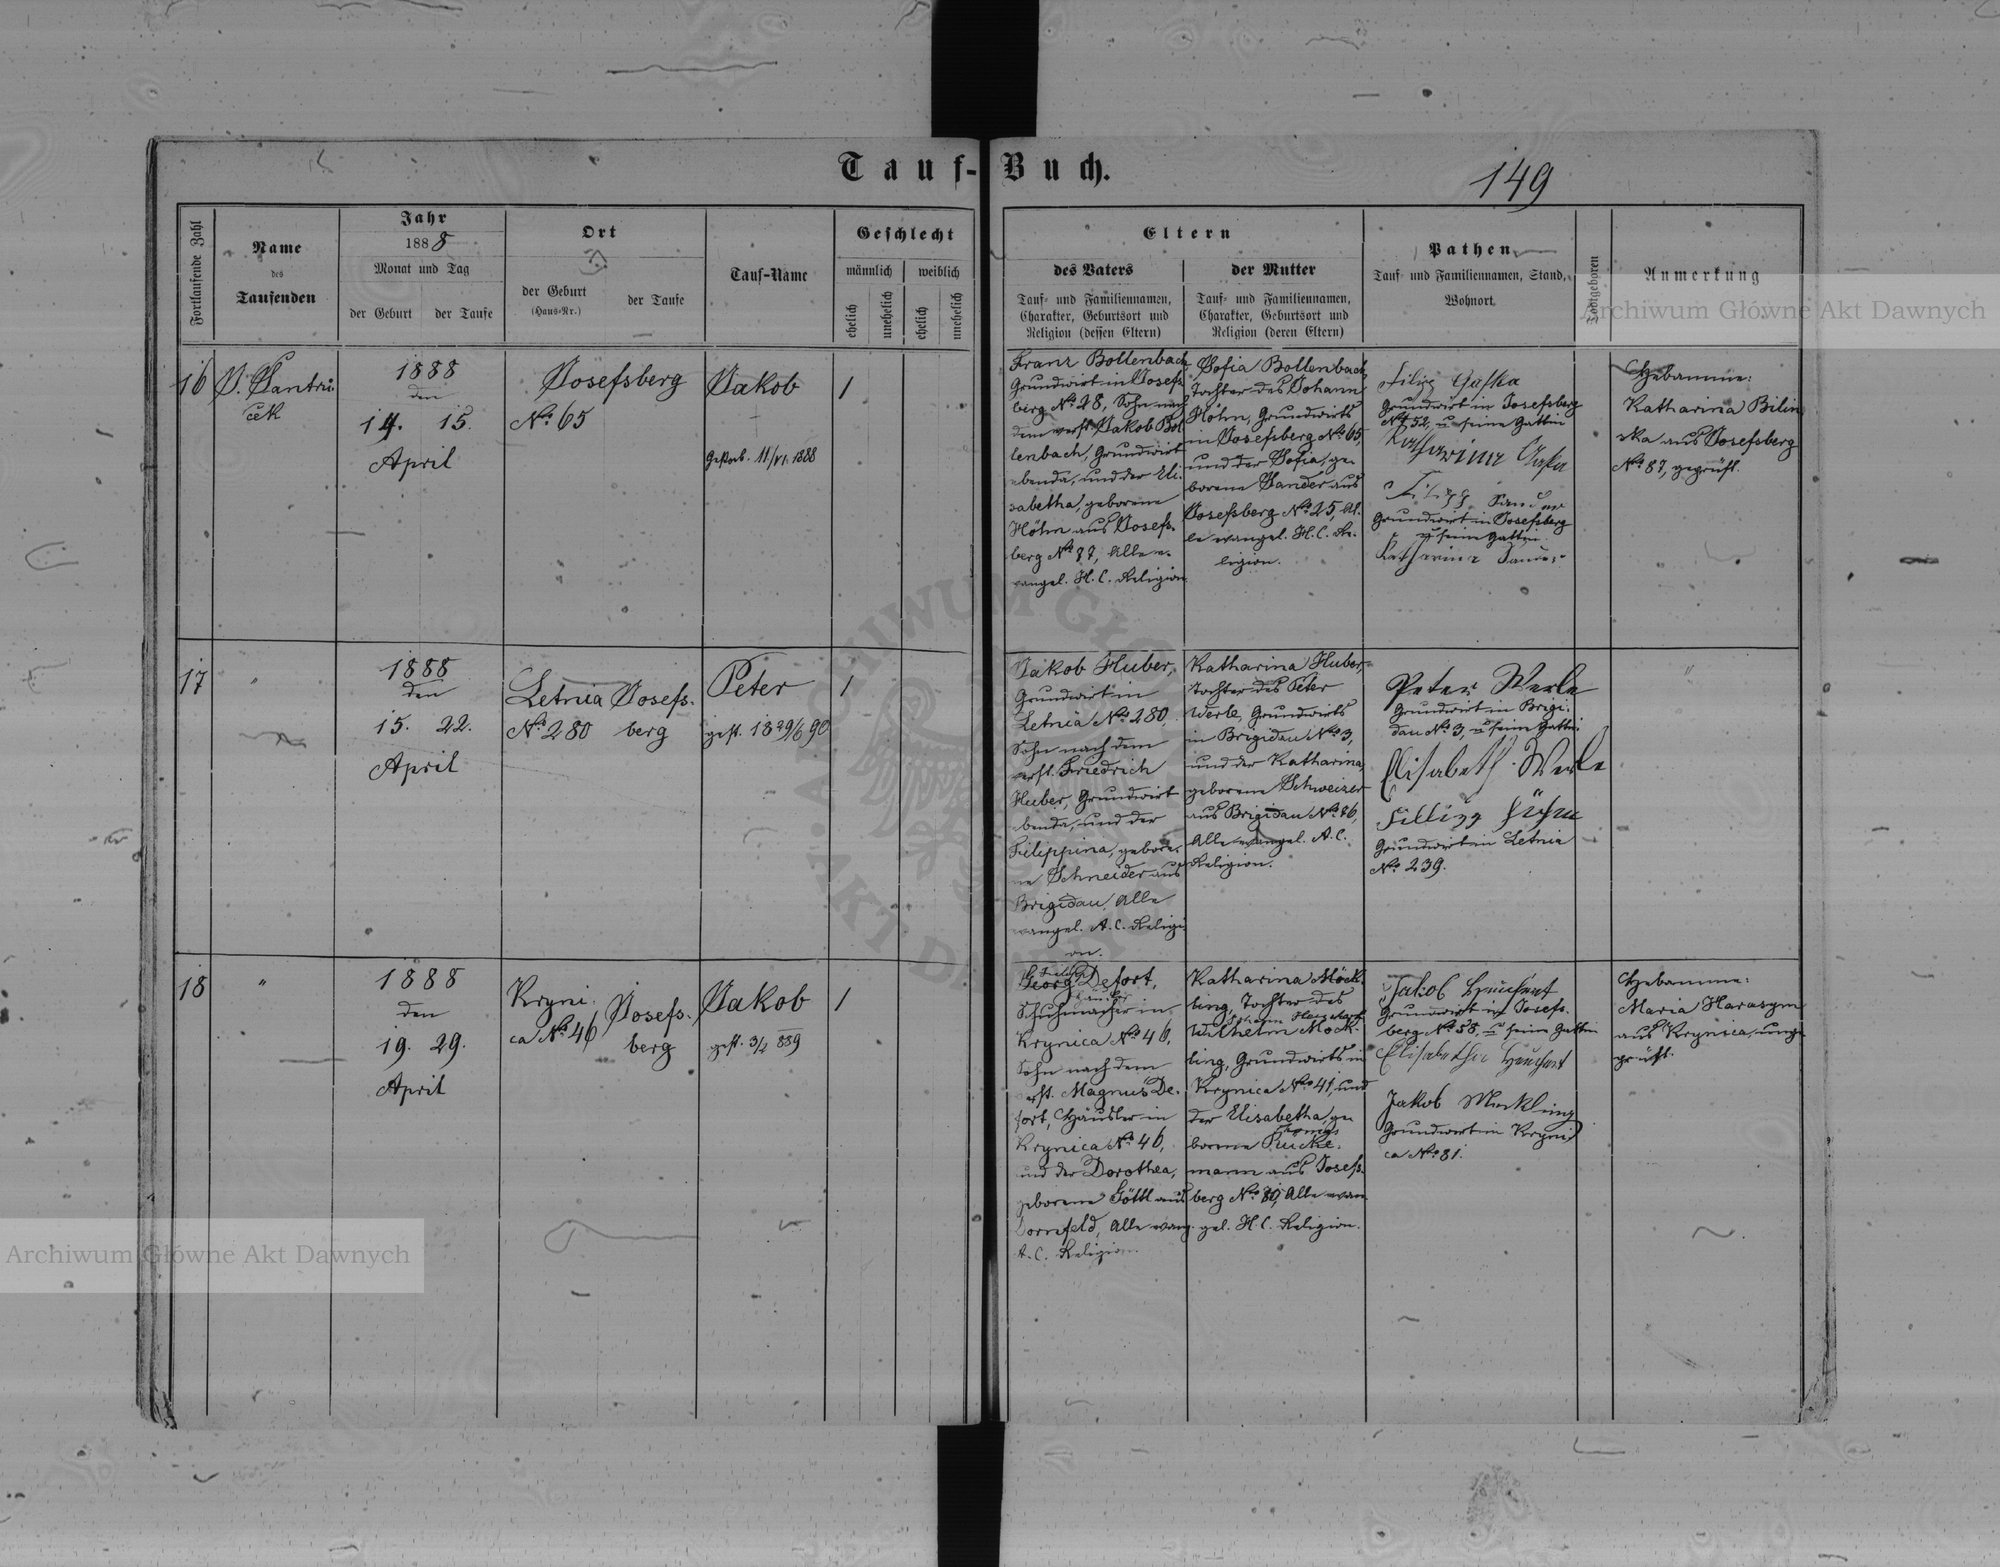 Tauf-Buch.
149
Fortlaufende Zahl
Name
des
Taufenden
Jahr
1888
Monat und Tag
der Geburt
der Taufe
Ort
der Geburt
(Haus-Nr.)
der Taufe
Tauf-Name
Geschlecht
männlich
weiblich
ehelich
unehelich
ehelich
unehelich
Eltern
des Vaters
Tauf- und Familiennamen,
Charakter, Geburtsort und
Religion (dessen Eltern)
der Mutter
Tauf- und Familiennamen,
Charakter, Geburtsort und
Religion (deren Eltern)
Pathen
Tauf- und Familiennamen, Stand,
Wohnort.
Todtgeboren
Anmerkung
16
J. Jantru
cek
1888
den
14. 15.
April
Josefsberg
No 65
Jakob
Gestorb. 11/VI. 1888
1
Franz Bollenbach
Grundwirt in Josefs-
berg No 28, Sohn nach
dem verst. Jakob Bol
lenbach, Grundwirt
ebenda, und der Eli-
sabetha, geborene
Höhn aus Josefs-
berg No 87, Alle e-
vangel. H. C. Religion
Sofia Bollenbach,
Tochter des Johann
Höhn, Grundwirts
in Josefsberg No 65,
und der Sofia, ge-
borene Sander aus
Josefsberg No 25, Al-
le evangel. H. C. Re-
ligion.
Filipp Gaska
Grundwirt in Josefsberg
No 52, u seine Gattin
Katharina Gaska
Filipp Sander
Grundwirt in Josefsberg
u seine Gattin
Katharina Sander
Hebamme:
Katharina Bilin
ska aus Josefsberg
No 87, geprüft.
17
"
1888
den
15. 22.
April
Letnia
No 280
Josefs-
berg
Peter
gest. 18 29/6 90
1
Jakob Huber,
Grundwirt in
Letnia No 280
Sohn nach dem
verst. Friedrich
Huber, Grundwirt
ebenda, und der
Filippina, gebore-
ne Schneider aus
Brigidau, Alle
evangel. A. C. Religi
on.
Katharina Huber,
Tochter des Peter
Werle, Grundwirts
in Brigidau No 3,
und der Katharina,
geborene Schweizer
aus Brigidau No 86,
Alle evangel. A. C.
Religion.
Peter Werle
Grundwirt in Brigi-
dau No 3, u seine Gattin
Elisabeth Werle
Grundwirt in Letnia
No 239.
"
18
"
1888
den
19. 29.
April
Kryni-
ca No 46
Josefs-
berg
Jakob
gest. 3/2 889
1
Georg Defort,
Schuhmacher in
Krynica No 46,
Sohn nach dem
verst. Magnus De-
fort, Häusler in
Krynica No 46,
und der Dorothea,
geborene Göttl aus
Dornfeld, Alle evang.
A. C. Religion.
Katharina Möck-
ling, Tochter des
Wilhelm Möck-
ling, Grundwirts in
Krynica No 41, und
der Elisabetha, ge
borene Rucke-
mann aus Josefs-
berg No 80, Alle evan
gel. H. C. Religion.
Jakob Heuchert
Grundwirt in Josefs-
berg No 58, u seine Gattin
Elisabetha Heuchert
Jakob Mockling
Grundwirt in Kryni
ca No 81.
Hebamme:
Maria Harasym
aus Krynica, unge-
prüft.
Archiwum Główne Akt Dawnych
Archiwum Główne Akt Dawnych
ARCHIWUM GŁÓWNE AKT DAWNYCH